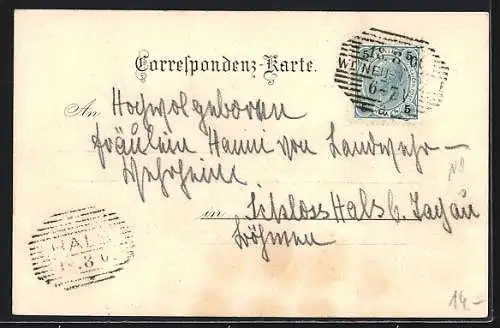 Correspondenz-Karte.
18.8.00
W. NEU
6-7
5
5
An Hochwolgeboren
Fräulein Hanni von Landwehr-
Wehrheim
in Schloss Hals b. Tachau
Böhmen
HALS
18.8.0
14.-